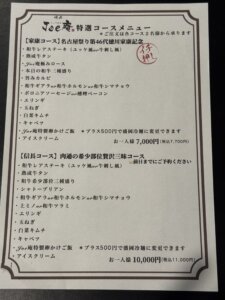 Joe庵 特選コースメニュー
＊ご注文は各コース2名様から承ります
イチ押し
【家康コース】名古屋祭り第46代徳川家康記念
・和牛レアステーキ（ユッケ風or牛刺し風）
・熟成牛タン
・本日の和牛 二種盛り
・旨みカルビ
・和牛ギアラor和牛ホルモンor和牛シマチョウ
・ボロニアソーセージor燻製ベーコン
・エリンギ
・玉ねぎ
・白菜キムチ
・キャベツ
・Joe庵特製卵かけご飯 ＊プラス500円で盛岡冷麺に変更できます
・アイスクリーム
お一人様 7,000円（税込7,700円）
【信長コース】肉通の希少部位贅沢三昧コース
前日までにご予約ください
・和牛レアステーキ（ユッケ風or牛刺し風）
・熟成牛タン
・和牛希少部位三種盛り
・シャトーブリアン
・和牛ギアラor和牛ホルモンor和牛シマチョウ
・上ミノor和牛アブミ
・エリンギ
・玉ねぎ
・白菜キムチ
・キャベツ
・Joe庵特製卵かけご飯 ＊プラス500円で盛岡冷麺に変更できます
・アイスクリーム
お一人様 10,000円（税込11,000円）